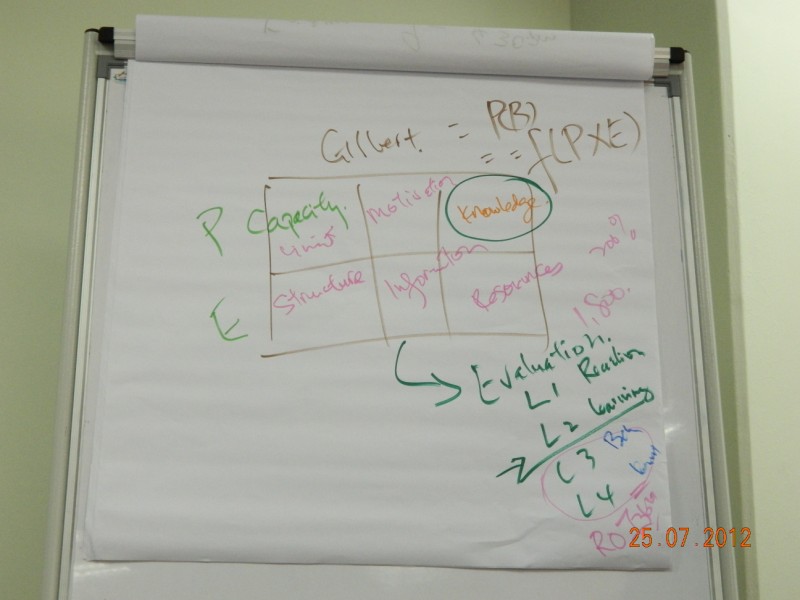 Gilbert. = P(B)
= = f(PXE)
P Capacity. Motivation Knowledge.
E Structure Information Resources 200%
1,800.
Evaluation.
L1 Reaction
L2 learning
L3 Beh
L4
25.07.2012